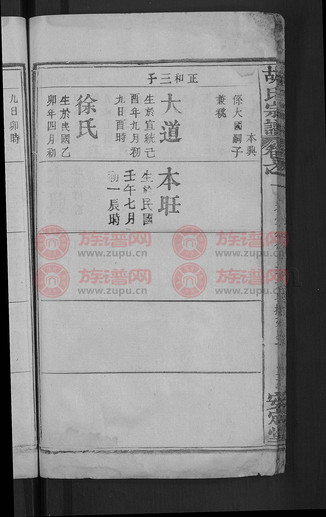 胡氏宗譜卷之一
安定堂
正和三子
本典
係大國嗣子
兼祧
大道
生於宣統己
酉年九月初
九日酉時
徐氏
生於民國乙
卯年四月初
九日卯時
本旺
生於民國
壬午七月
初一辰時
族谱网
www.zupu.cn
族谱网
www.zupu.cn
族谱网
www.zupu.cn
族谱网
www.zupu.cn